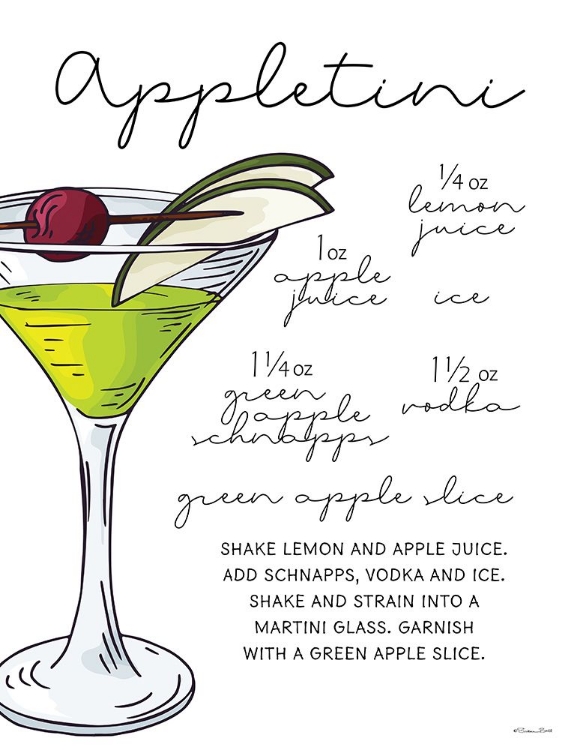 Appletini
1/4 oz
lemon
juice
1 oz
apple
juice
ice
1 1/4 oz
green
apple
schnapps
1 1/2 oz
vodka
green apple slice
SHAKE LEMON AND APPLE JUICE.
ADD SCHNAPPS, VODKA AND ICE.
SHAKE AND STRAIN INTO A
MARTINI GLASS. GARNISH
WITH A GREEN APPLE SLICE.